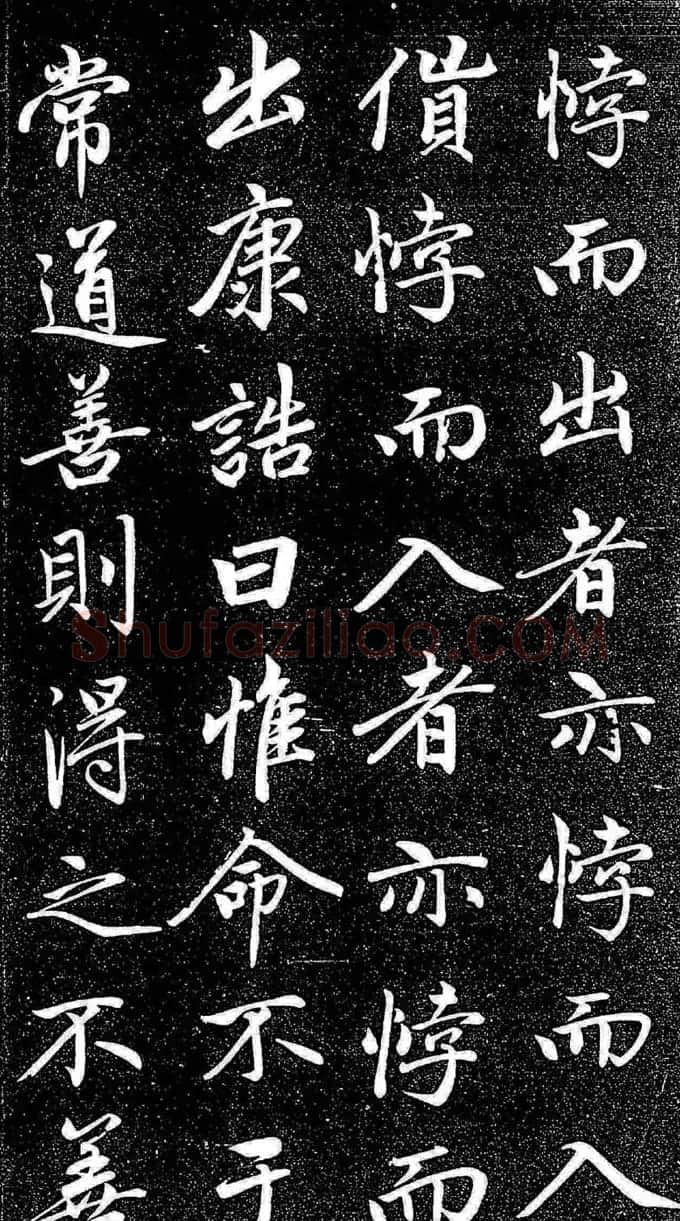 悖而出者亦悖而入
貨悖而入者亦悖而
出康誥曰惟命不于
常道善則得之不善
Shufaziliao.COM